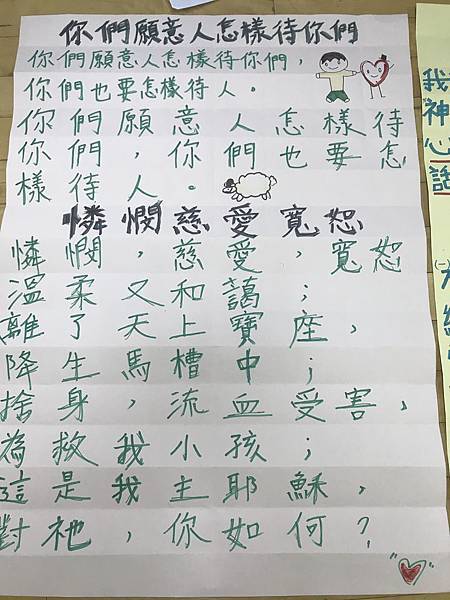 你們願意人怎樣待你們
你們願意人怎樣待你們，
你們也要怎樣待人。
你們願意人怎樣待
你們，你們也要怎
樣待人。
憐憫慈愛寬恕
憐憫，慈愛，寬恕
溫柔又和藹；
離了天上寶座，
降生馬槽中；
捨身，流血受害，
為救我小孩；
這是我主耶穌，
對祂，你如何？
我
神
心
話
(一)